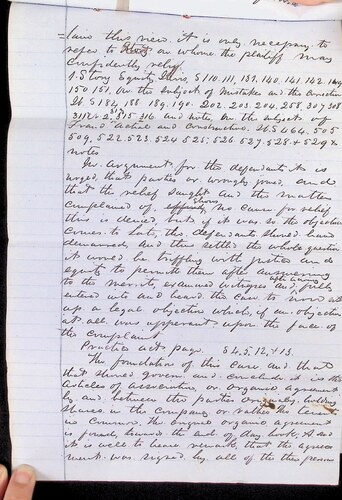 = lain this view it is only necessary to
refer to on whom the plaintiff may
confidently relief
1. Story Equity S 110, 111, 139, 140, 141, 142, 144
150, 151, on the subject of Mistake and the correction
Ib S 184, 188, 189, 190, 202, 203, 204, 258, 307, 308
311 315 316 and notes on the subject of
Fraud Actual and Constructive. Ib S 464, 505
509, 522, 523, 524, 525, 526, 527, 528 & 529 &
notes
In argument for the defendants it is
urged, that parties are wrongly joined, and
that the relief sought and the matters
complained of, shows no cause for relief
this is denied, but if it was so the objection
comes to late, the defendants should have
demurred, and thus settled the whole question
it would be trifling with justice and
equity to permit them after answering
to the merits, examined witnesses and after having fully
entered into and heard the case to now set
up a legal objection which, if an objection
at all was apparent upon the face of
the complaint
Practice act page. S 4, 5, 12, & 13.
The foundation of this case and that
that should govern and conclude it is the
Articles of association or organic agreement
by and between the parties originally holding
shares in the Company or rather the tenants
in common. The original organic agreement
is found, toward the end of day book, A and
it is well to here remark, that the agree-
ment was signed by all of the then persons